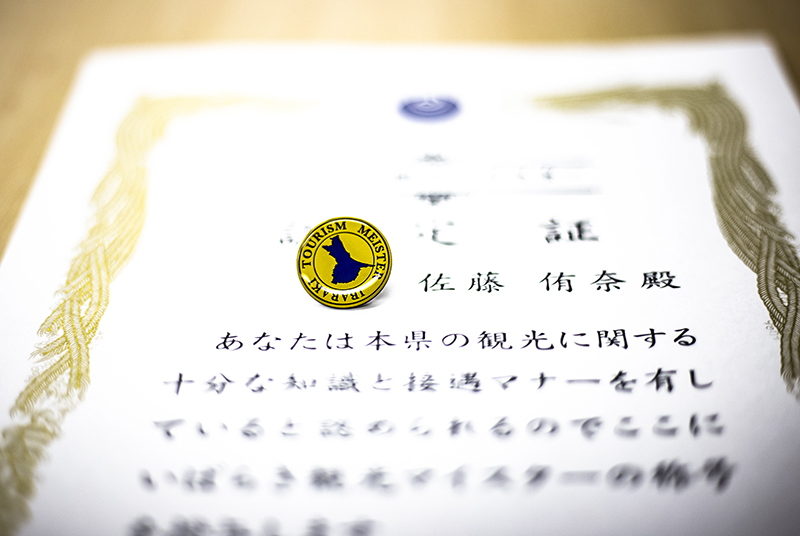 定 証
TOURISM MEISTER IBARAKI
佐藤 侑奈殿
あなたは本県の観光に関する
十分な知識と接遇マナーを有し
ていると認められるのでここに
いばらき観光マイスターの称号